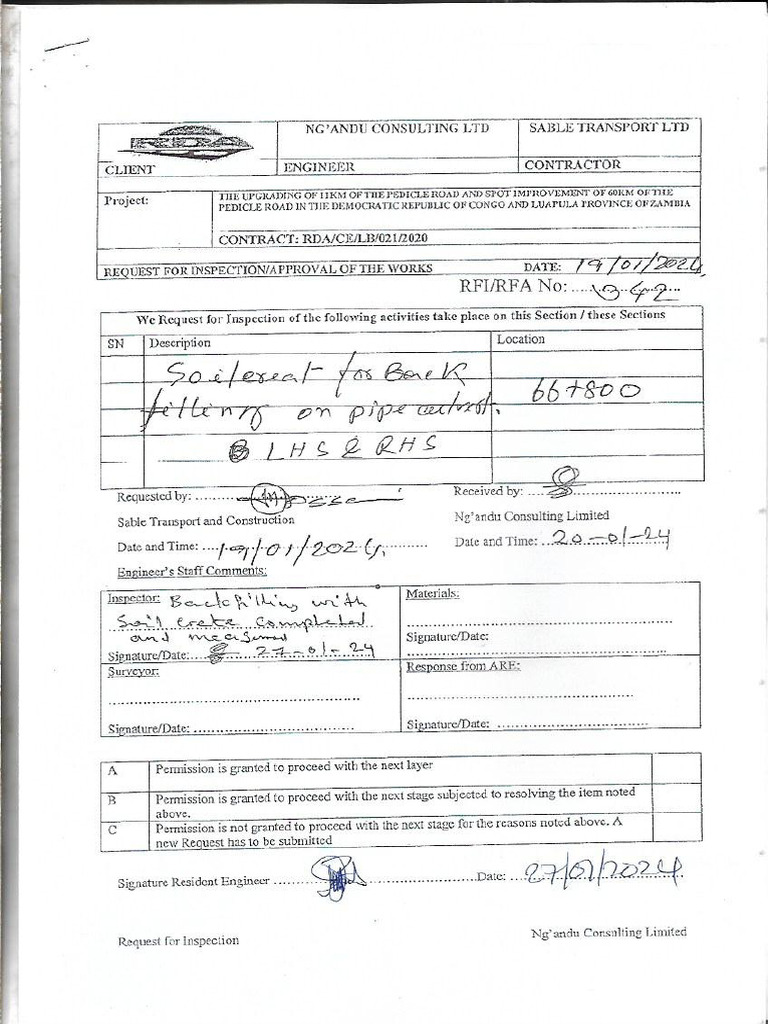 RDA
NG'ANDU CONSULTING LTD
SABLE TRANSPORT LTD
CLIENT
ENGINEER
CONTRACTOR
Project:
THE UPGRADING OF 11KM OF THE PEDICLE ROAD AND SPOT IMPROVEMENT OF 60KM OF THE
PEDICLE ROAD IN THE DEMOCRATIC REPUBLIC OF CONGO AND LUAPULA PROVINCE OF ZAMBIA
CONTRACT: RDA/CE/LB/021/2020
REQUEST FOR INSPECTION/APPROVAL OF THE WORKS
DATE: 19/01/2024
RFI/RFA No: 042
We Request for Inspection of the following activities take place on this Section / these Sections
SN
Description
Location
Soilcreat for Back
filling on pipe culvert.
66+800
LHS & RHS
Requested by:
Received by:
Sable Transport and Construction
Ng'andu Consulting Limited
Date and Time: 19/01/2024
Date and Time: 20-01-24
Engineer's Staff Comments:
Inspector: Backfilling with
Soil crete completed
and measured
Signature/Date: 27-01-24
Materials:
Signature/Date:
Surveyor:
Signature/Date:
Response from ARE:
Signature/Date:
A
Permission is granted to proceed with the next layer
B
Permission is granted to proceed with the next stage subjected to resolving the item noted
above.
C
Permission is not granted to proceed with the next stage for the reasons noted above. A
new Request has to be submitted
Signature Resident Engineer
Date: 27/01/2024
Request for Inspection
Ng'andu Consulting Limited